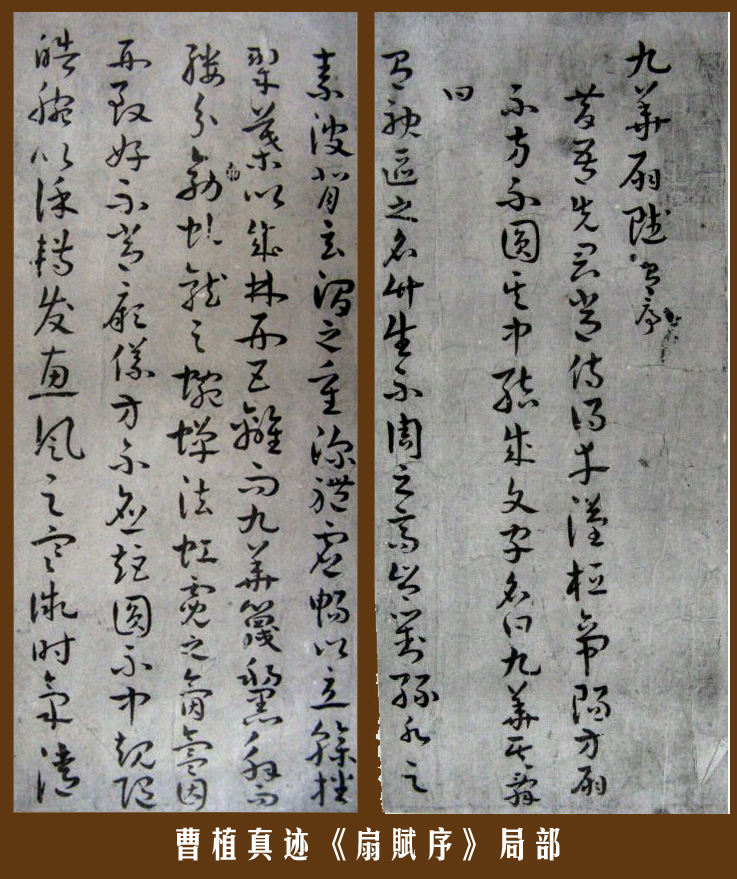 九華扇賦有序
昔吾先君常侍得幸漢桓帝賜方扇
不方不圓其中結成文字名曰九華其辭
曰
有神區之名竹生不周之高岑對綠水之
素波背玄澗之重深體虛暢以立幹播
翠葉以成林形五離而九華篾氂解而
縷分効虬龍之蜿蟬法虹霓之氤氳因
形致好不常厥儀方不應矩圓不中規隨
皓腕以徐轉發惠風之寒微時氣清
曹植真迹《扇賦序》局部